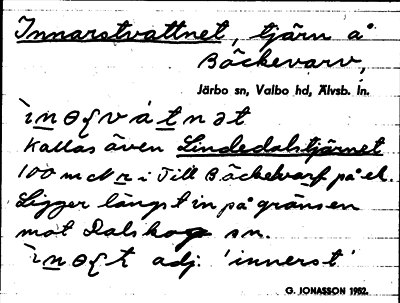 Innarstvattnet, tjärn å
Bäckevarv,
Järbo sn, Valbo hd, Älvsb. ln.
kallas även Lindedalstjärnet
100 m N r i Till Bäckevarf på ek.
Ligger längst in på gränsen
mot Dalskog sn.
adj. 'innerst'
G. JONASSON 1952.